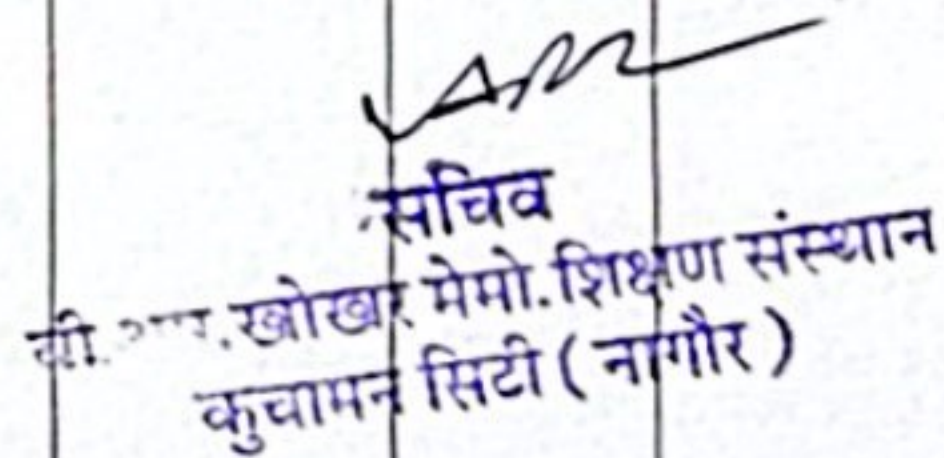 सचिव
खोखर मेमो.शिक्षण संस्थान
कुचामन सिटी ( नागौर )